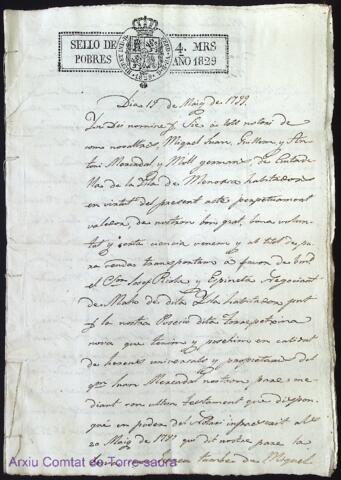 SELLO DE POBRES
4. MRS
AÑO 1829
Dia 15 de Maig de 1799.
In Dei nomine Sie à tott notori
com nosaltres Miquel Juan, Guillem, y
Mercadal y Moll germans de Ciutade-
lla de la Isla de Menorca habitadors
en virtut del present acte perpetuament
valedor, de nostron bon grat, bona volun-
tat y certa ciencia venem y al titol de pu-
ra venda transportam à favor de
el Josef y Espineta Negociant
de Maho de dita Isla habitador
la nostra Posecio dita Torrepetxina
nova que tenim y posehim en calitat
de hereus universals y propietaris del
qm. Juan Mercadal nostron pare me-
diant son ultim testament que dispon-
gué en poder del Notari infrascrit als
20 Maig de 1791 qui dit nostre pare la
de Miquel
Arxiu Comtat de Torre-saura